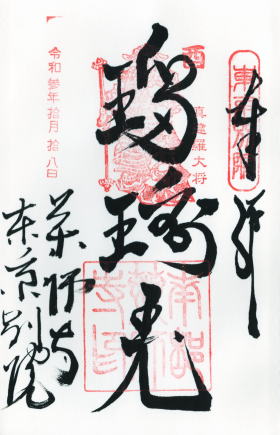 奉拝
東京別院
酉
真達羅大将
瑠璃光
令和参年拾月拾八日
薬師寺
東京別院